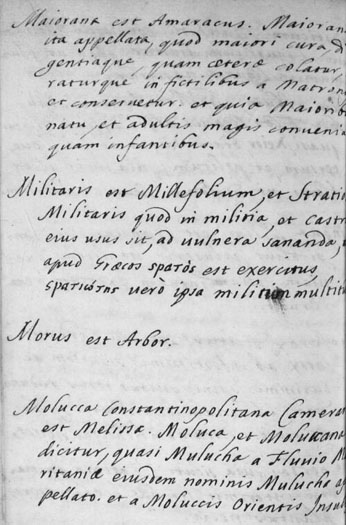 Maiorana est Amaracus. Maioran
ita appellata, quod maiori cura di
gentiaque, quam cæteræ colatur,
raturque in fictilibus a Matron
et conseruetur. et quia Maiorib
natu, et adultis magis convenia
quam infantibus.
Militaris est Millefolium, et Stratio
Militaris quod in militia, et Castr
eius usus sit, ad uulnera sananda,
apud Græcos est exercitus,
uerò ipsa militum multitu
Morus est Arbor.
Molucca Constantinopolitana Camerar
est Melissæ. Moluca, et Moluccana
dicitur, quasi Mulucha a Fluvio M
ritaniæ eiusdem nominis Mulucha a
pellato. et a Moluccis Orientis Insul